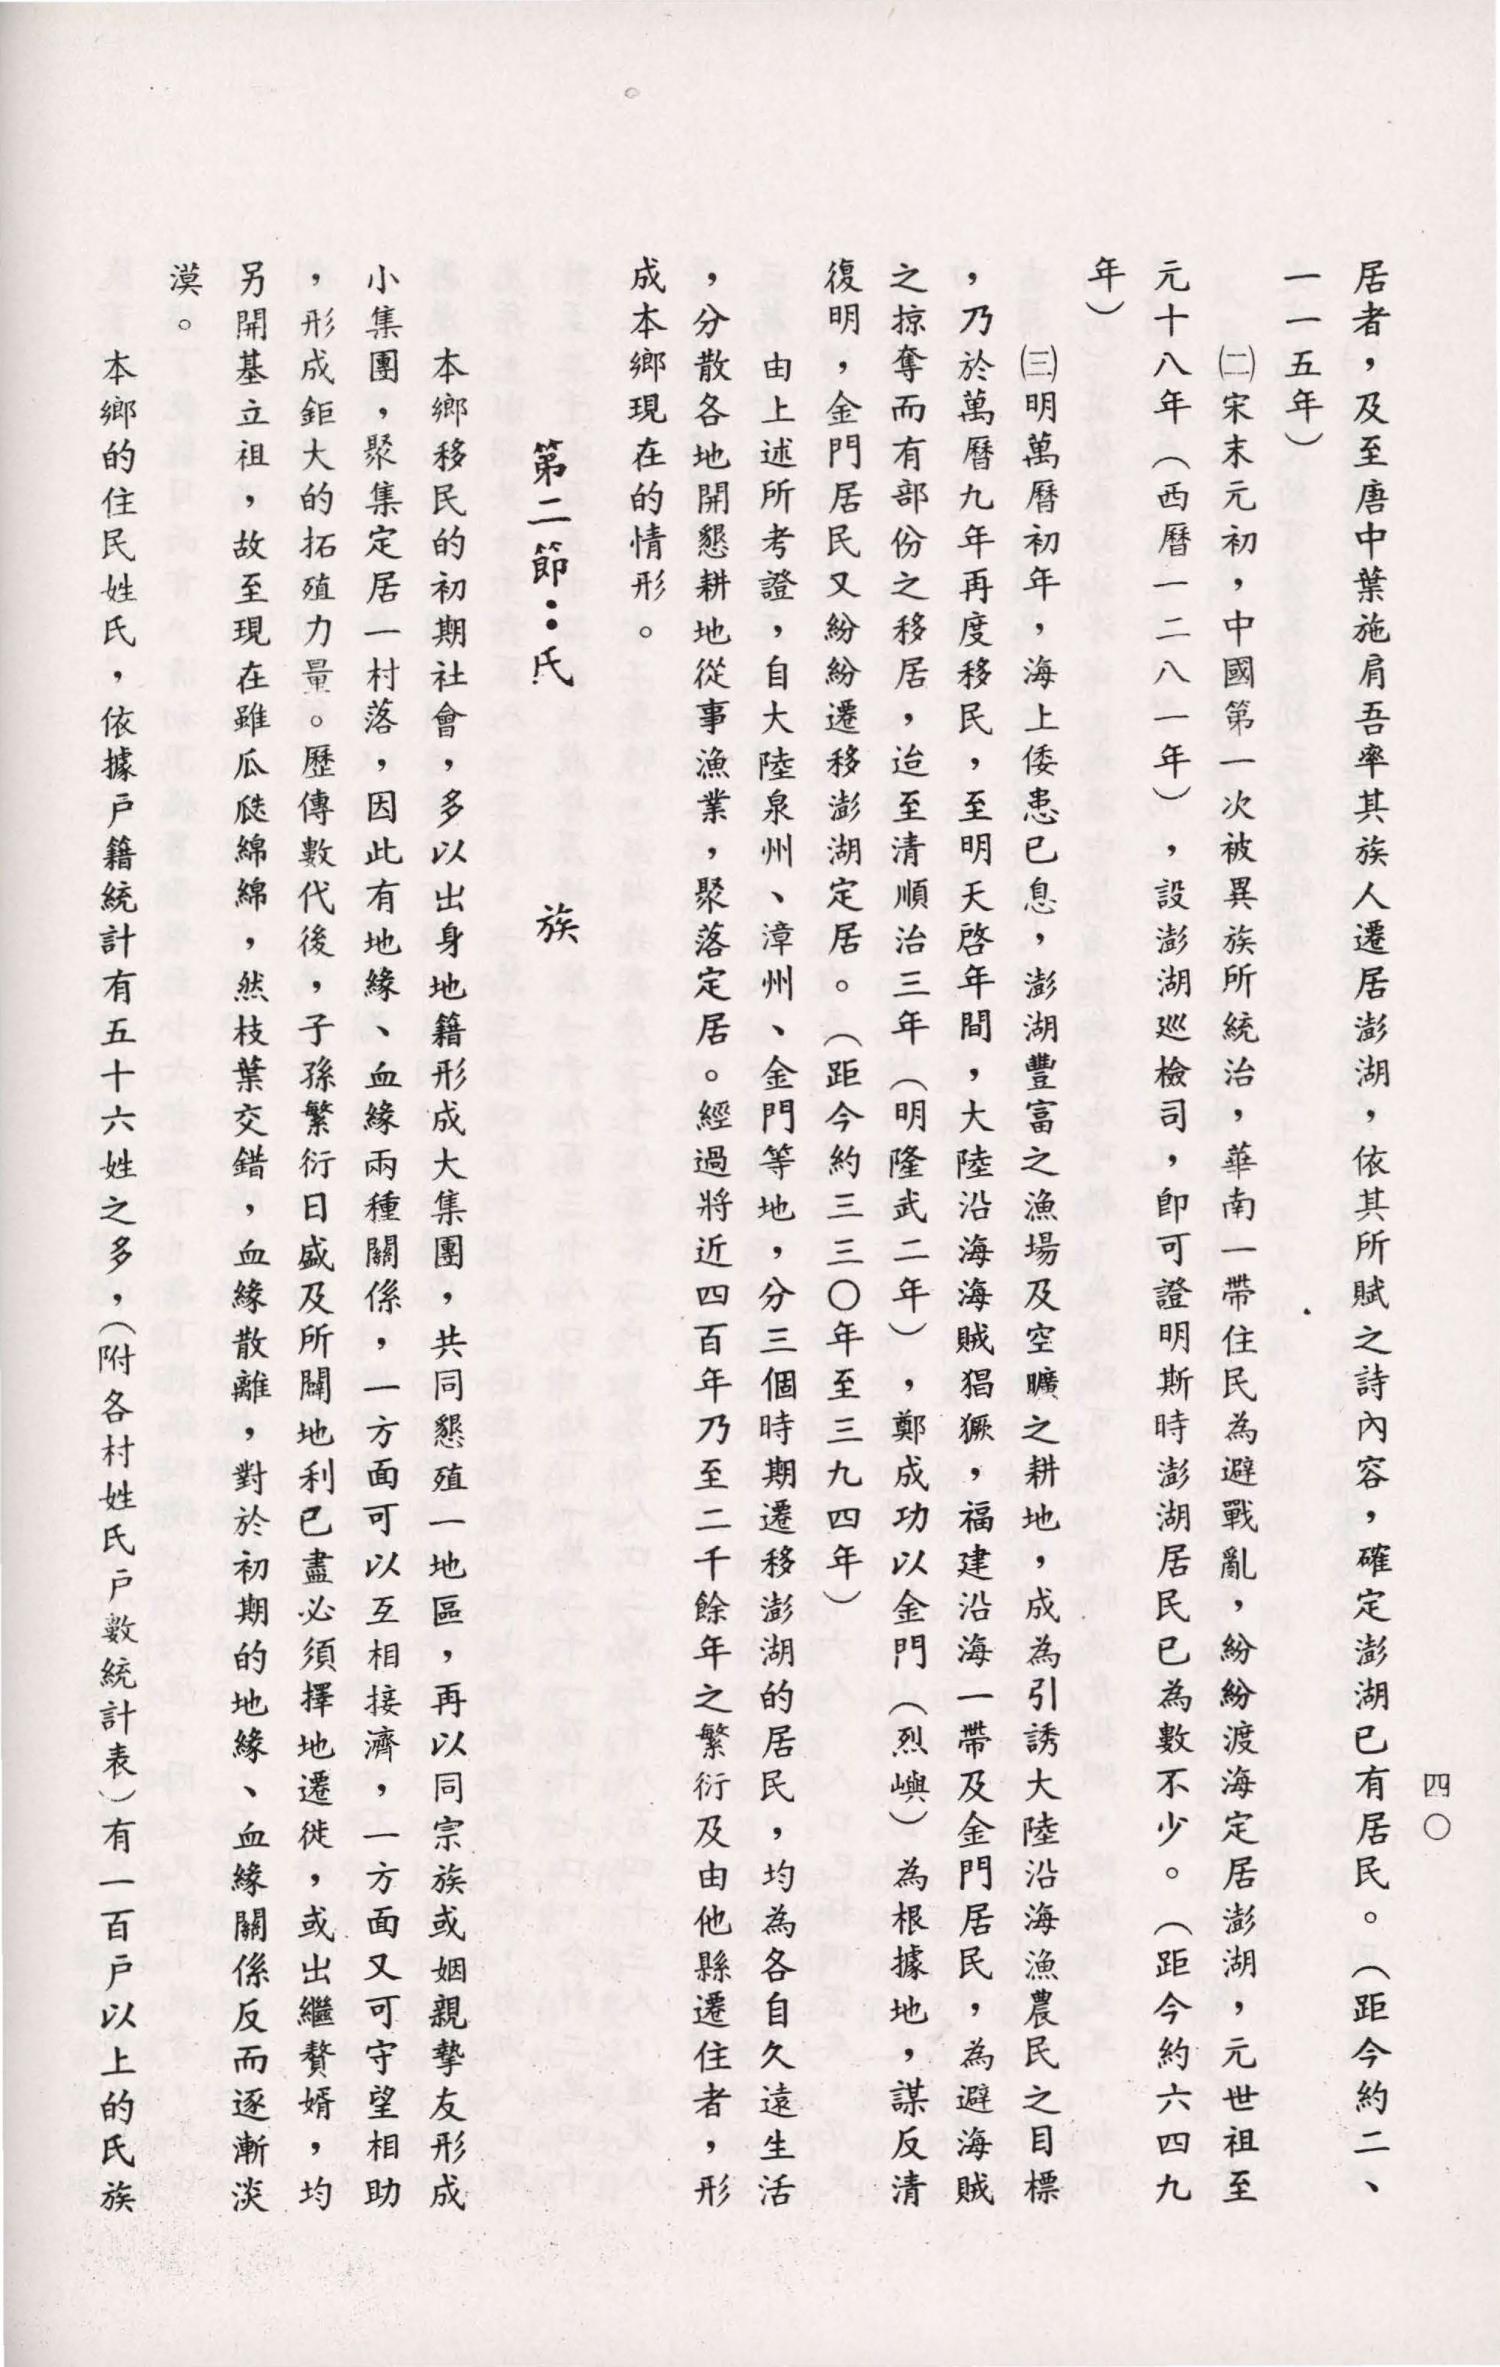 四〇
居者，及至唐中葉施肩吾率其族人遷居澎湖，依其所賦之詩內容，確定澎湖已有居民。（距今約二、
一一五年）
㈡宋末元初，中國第一次被異族所統治，華南一帶住民為避戰亂，紛紛渡海定居澎湖，元世祖至
元十八年（西曆一二八一年），設澎湖巡檢司，即可證明斯時澎湖居民已為數不少。（距今約六四九
年）
㈢明萬曆初年，海上倭患已息，澎湖豐富之漁場及空曠之耕地，成為引誘大陸沿海漁農民之目標
，乃於萬曆九年再度移民，至明天啓年間，大陸沿海海賊猖獗，福建沿海一帶及金門居民，為避海賊
之掠奪而有部份之移居，迨至清順治三年（明隆武二年），鄭成功以金門（烈嶼）為根據地，謀反清
復明，金門居民又紛紛遷移澎湖定居。（距今約三三〇年至三九四年）
由上述所考證，自大陸泉州、漳州、金門等地，分三個時期遷移澎湖的居民，均為各自久遠生活
，分散各地開懇耕地從事漁業，聚落定居。經過將近四百年乃至二千餘年之繁衍及由他縣遷住者，形
成本鄉現在的情形。
第二節：氏　　族
本鄉移民的初期社會，多以出身地籍形成大集團，共同懇殖一地區，再以同宗族或姻親摯友形成
小集團，聚集定居一村落，因此有地緣、血緣兩種關係，一方面可以互相接濟，一方面又可守望相助
，形成鉅大的拓殖力量。歷傳數代後，子孫繁衍日盛及所闢地利已盡必須擇地遷徙，或出繼贅婿，均
另開基立祖，故至現在雖瓜瓞綿綿，然枝葉交錯，血緣散離，對於初期的地緣、血緣關係反而逐漸淡
漠。
本鄉的住民姓氏，依據戶籍統計有五十六姓之多，（附各村姓氏戶數統計表）有一百戶以上的氏族